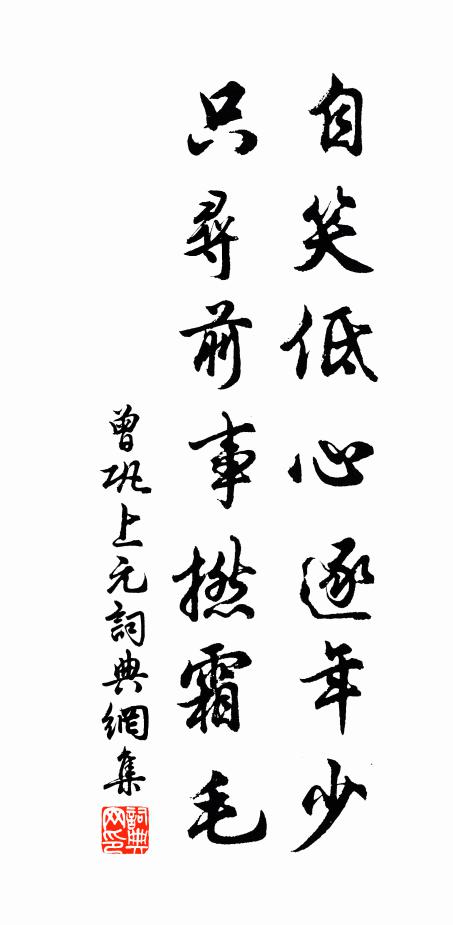 自笑低心逐年少
只尋前事撚霜毛
曾巩上元詞典網集
詞典網印